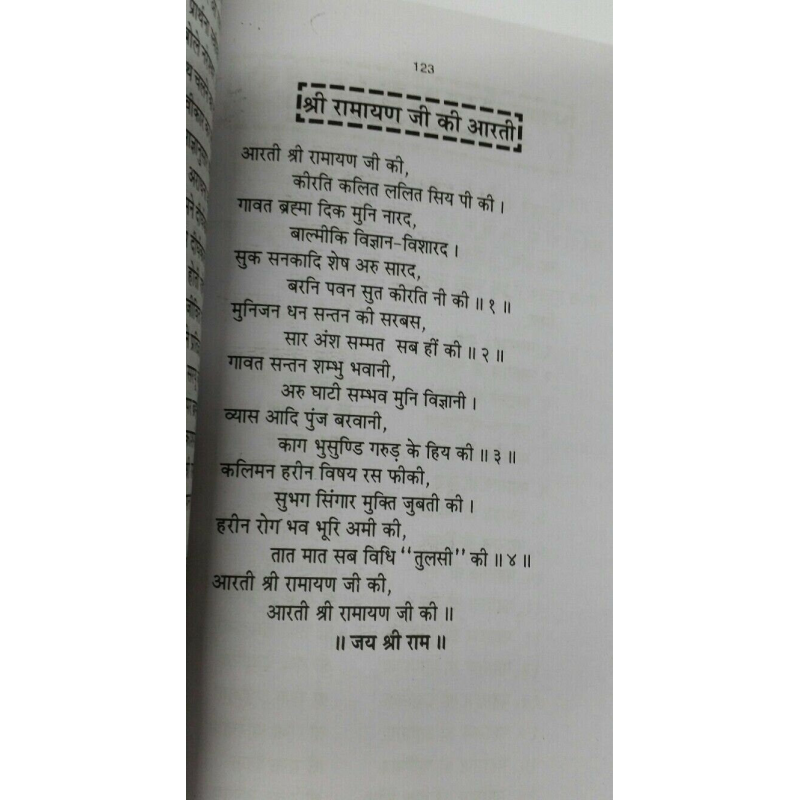 123
श्री रामायण जी की आरती
आरती श्री रामायण जी की,
कीरति कलित ललित सिय पी की ।
गावत ब्रह्मा दिक मुनि नारद,
बाल्मीकि विज्ञान-विशारद ।
सुक सनकादि शेष अरु सारद,
बरनि पवन सुत कीरति नी की ॥ १ ॥
मुनिजन धन सन्तन की सरबस,
सार अंश सम्मत सब हीं की ॥ २ ॥
गावत सन्तन शम्भु भवानी,
अरु घाटी सम्भव मुनि विज्ञानी ।
व्यास आदि पुंज बरवानी,
काग भुसुण्डि गरुड़ के हिय की ॥ ३ ॥
कलिमन हरीन विषय रस फीकी,
सुभग सिंगार मुक्ति जुबती की ।
हरीन रोग भव भूरि अमी की,
तात मात सब विधि ‘‘तुलसी’’ की ॥ ४ ॥
आरती श्री रामायण जी की,
आरती श्री रामायण जी की ॥
॥ जय श्री राम ॥